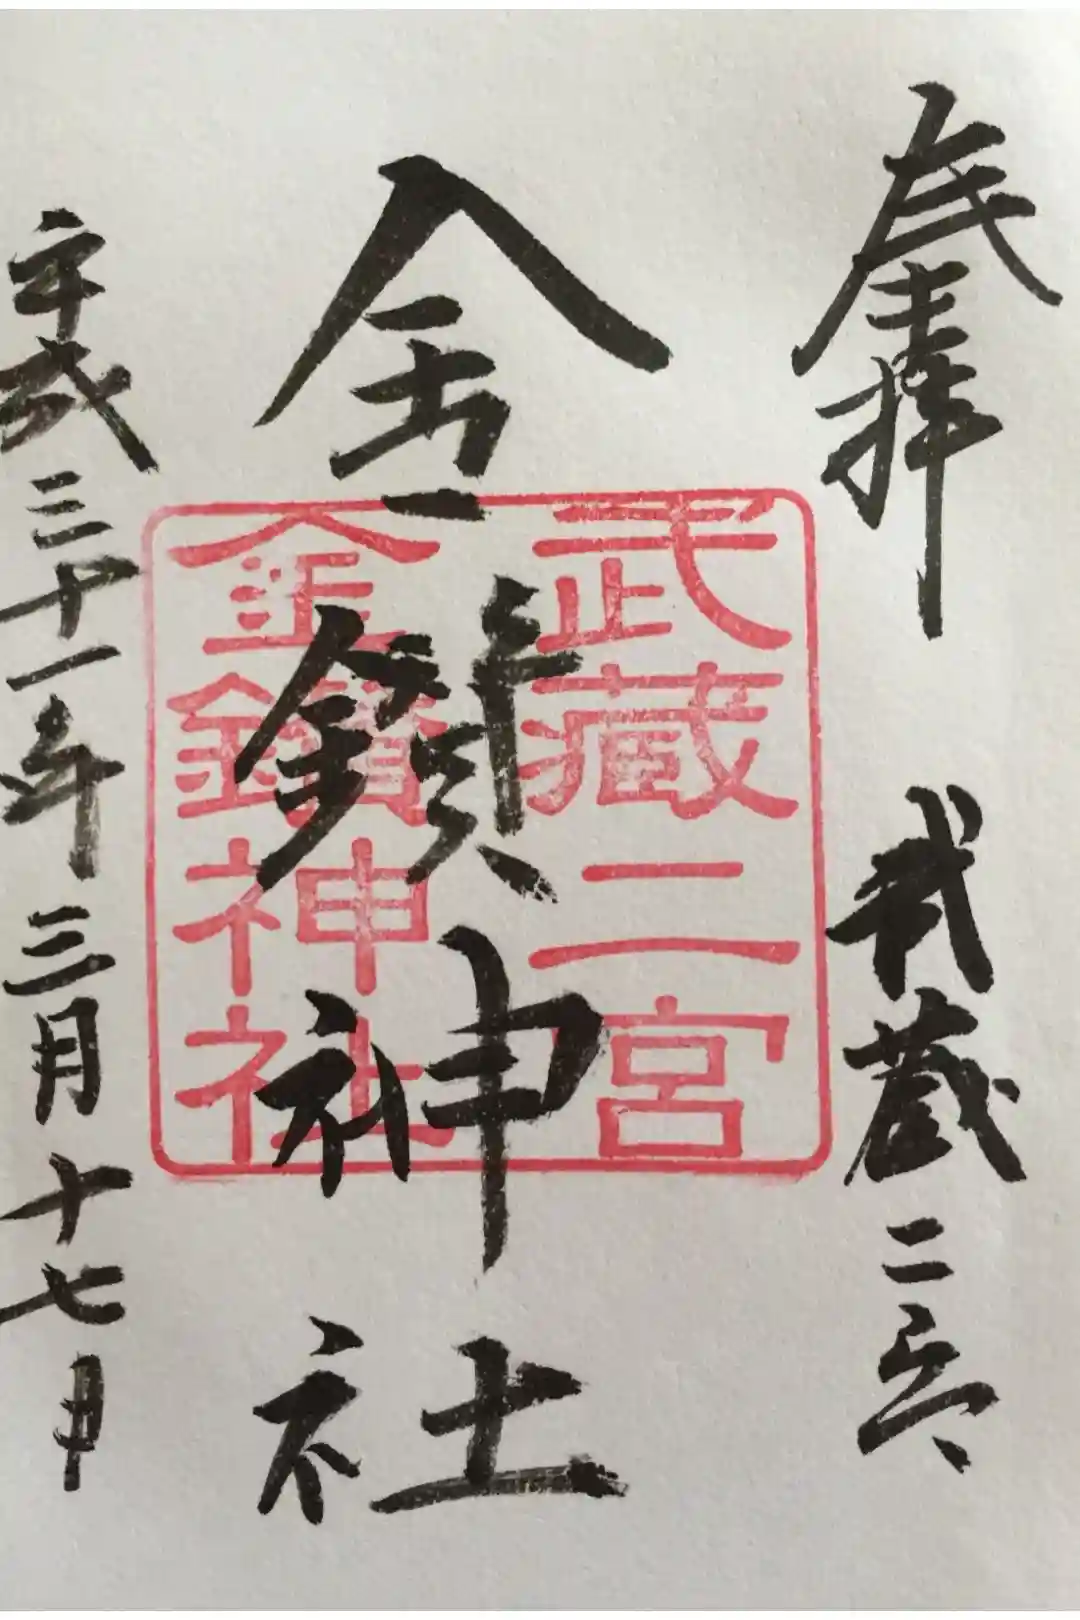 奉拝　武蔵二宮
金鑚神社
武蔵二宮
金鑚神社
平成三十一年三月十七日